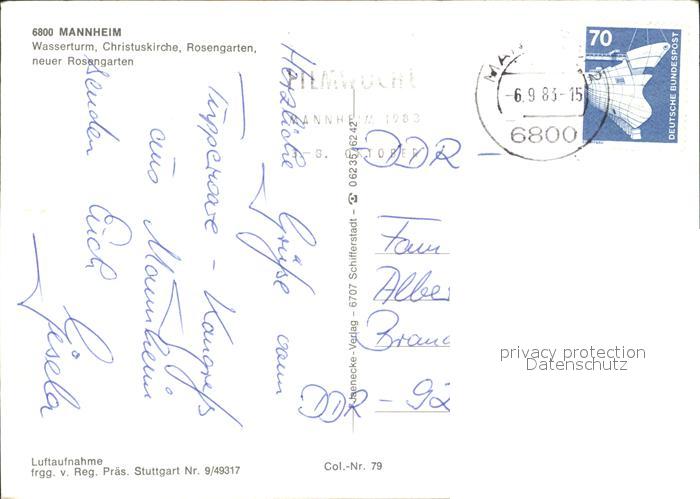 6800 MANNHEIM
Wasserturm, Christuskirche, Rosengarten,
neuer Rosengarten
Herzliche Grüße vom
Tupperware - Kongreß
aus Mannheim
senden Euch
Gisela
FILMWOCHE
MANNHEIM 1983
3-8. OKTOBER
-6.9.83-15
6800
70
DEUTSCHE BUNDESPOST
DDR -
Fam
Albe
Branc
DDR - 92
Jaenecke-Verlag – 6707 Schifferstadt – ☎ 06235/6242
privacy protection
Datenschutz
Luftaufnahme
frgg. v. Reg. Präs. Stuttgart Nr. 9/49317
Col.-Nr. 79